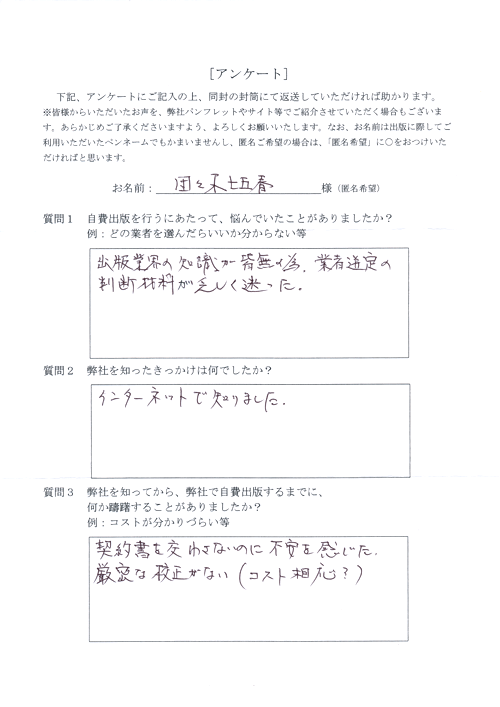 [アンケート]
下記、アンケートにご記入の上、同封の封筒にて返送していただければ助かります。
※皆様からいただいたお声を、弊社パンフレットやサイト等でご紹介させていただく場合もございま
す。あらかじめご了承くださいますよう、よろしくお願いいたします。なお、お名前は出版に際してご
利用いただいたペンネームでもかまいませんし、匿名ご希望の場合は、「匿名希望」に○をおつけいた
だければと思います。
お名前： 様（匿名希望）
質問１ 自費出版を行うにあたって、悩んでいたことがありましたか？
例：どの業者を選んだらいいか分からない等
出版業界の知識が皆無の為、業者選定の
判断材料が乏しく迷った。
質問２ 弊社を知ったきっかけは何でしたか？
インターネットで知りました。
質問３ 弊社を知ってから、弊社で自費出版するまでに、
何か躊躇することがありましたか？
例：コストが分かりづらい等
契約書を交わさないのに不安を感じた。
厳密な校正がない（コスト相応？）